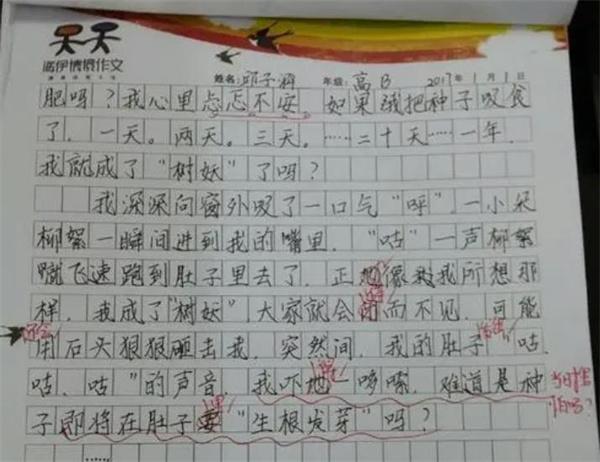 天天
海伊情境作文
姓名: 邱子涵 年级: 高B 2017年1月1日
肥吗？我心里忐忑不安 如果我把种子吸食
了．一天。两天。三天。……二十天……一年．
我就成了“树妖”了吗？
我深深向窗外吸了一口气“呼”．一小朵
柳絮一瞬间进到我的嘴里．“咕”一声柳絮
飞速跑到肚子里去了．正像我所想那
样，我成了“树妖”大家就会闭而不见．可能
用石头狠狠砸去我．突然间．我的肚子“咕．
咕．咕”的声音．我吓地哆嗦．难道是种
子即将在肚子里“生根发芽”吗？
……